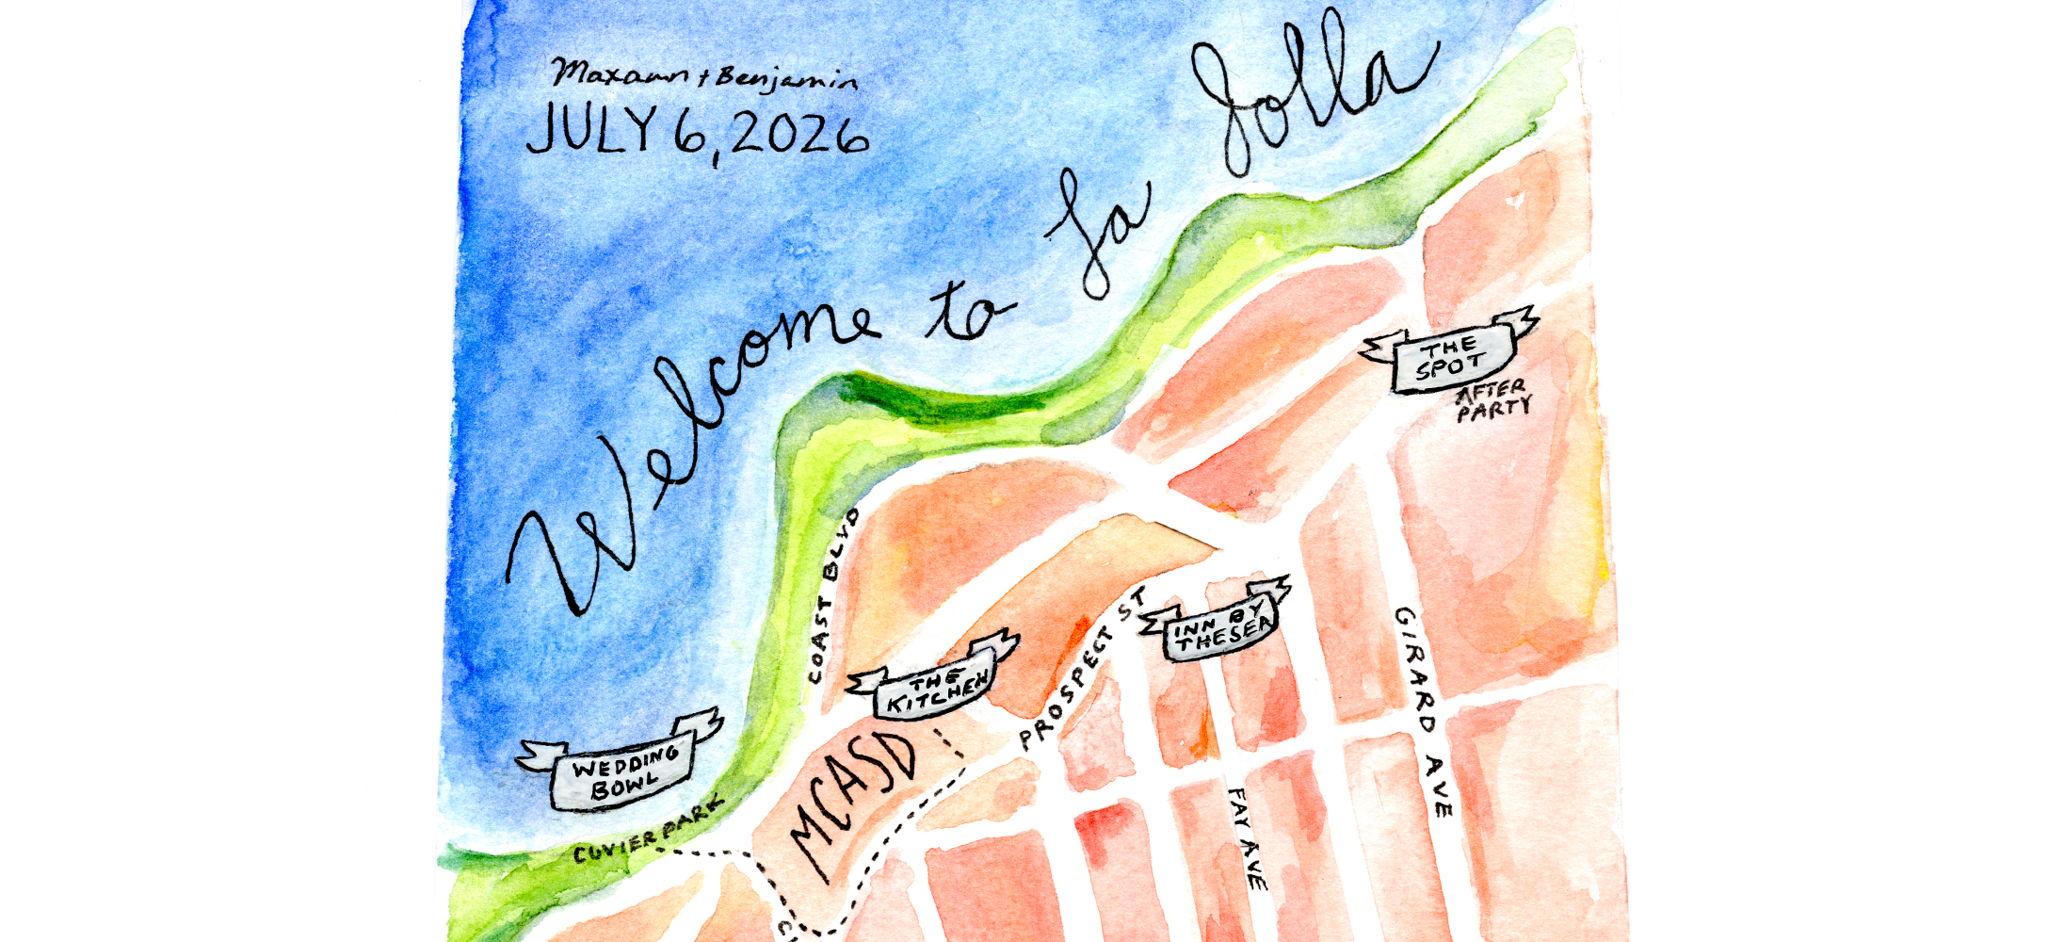 Maxann + Benjamin
JULY 6, 2026
Welcome to La Jolla
THE
SPOT
AFTER
PARTY
COAST BLVD
PROSPECT ST
INN BY
THE SEA
GIRARD AVE
THE
KITCHEN
WEDDING
BOWL
CUVIER PARK
MCASD
FAY AVE